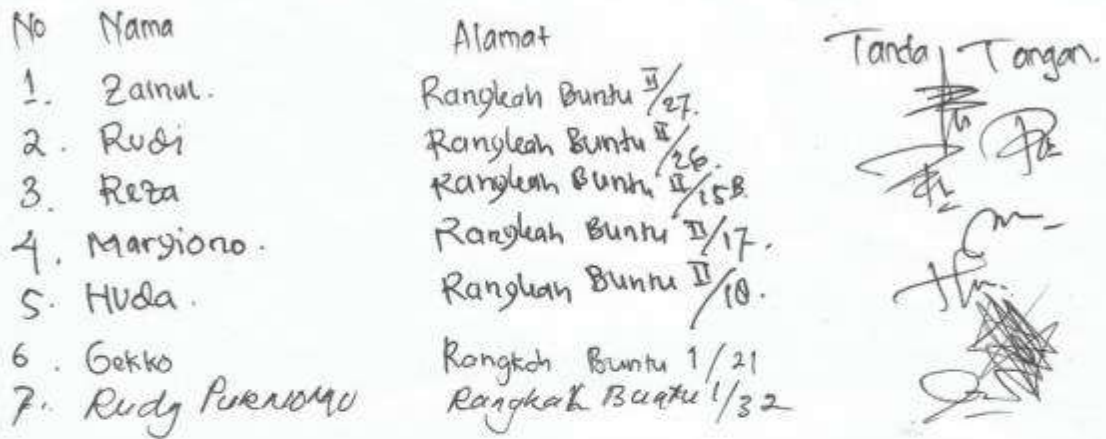 No Nama Alamat Tanda Tangan.
1. Zainul. Rangkah Buntu II/27.
2. Rudi Rangkah Buntu II/26.
3. Reza Rangkah Buntu II/15B.
4. Margiono. Rangkah Buntu II/17.
5. Huda. Rangkah Buntu II/18.
6. Gekko Rangkah Buntu 1/21
7. Rudy Purnomo Rangkah Buntu 1/32